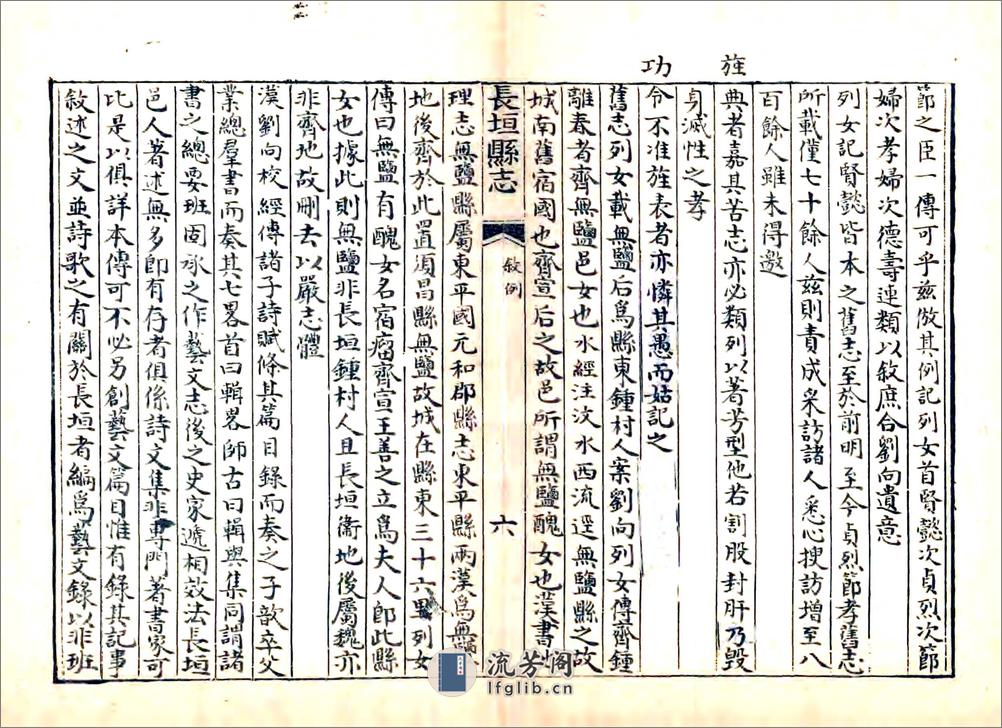 節之臣一傳可乎茲倣其例記列女首賢懿次貞烈次節
婦次孝婦次德壽連類以敘庶合劉向遺意
列女記賢懿皆本之舊志至於前明至今貞烈節孝舊志
所載僅七十餘人茲則責成采訪諸人悉心搜訪增至八
百餘人雖未得邀
旌典者嘉其苦志亦必類列以著芳型他若割股封肝乃毀
身滅性之孝
功令不准旌表者亦憐其愚而姑記之
舊志列女載無鹽后爲縣東鍾村人案劉向列女傳齊鍾
離春者齊無鹽邑女也水經注汶水西流逕無鹽縣之故
城南舊宿國也齊宣后之故邑所謂無鹽醜女也漢書地
長垣縣志 敘例 六
理志無鹽縣屬東平國元和郡縣志東平縣兩漢爲無鹽
地後齊於此置須昌縣無鹽故城在縣東三十六里列女
傳曰無鹽有醜女名宿瘤齊宣王善之立爲夫人卽此縣
女也據此則無鹽非長垣鍾村人且長垣衛地後屬魏亦
非齊地故刪去以嚴志體
漢劉向校經傳諸子詩賦條其篇目錄而奏之子歆卒父
業總羣書而奏其七畧首曰輯畧師古曰輯與集同謂諸
書之總要班固承之作藝文志後之史家遞相效法長垣
邑人著述無多卽有存者俱係詩文集非專門著書家可
比是以俱詳本傳可不必另創藝文篇目惟有錄其記事
敘述之文並詩歌之有關於長垣者編爲藝文錄以非班
流芳阁
lfglib.cn